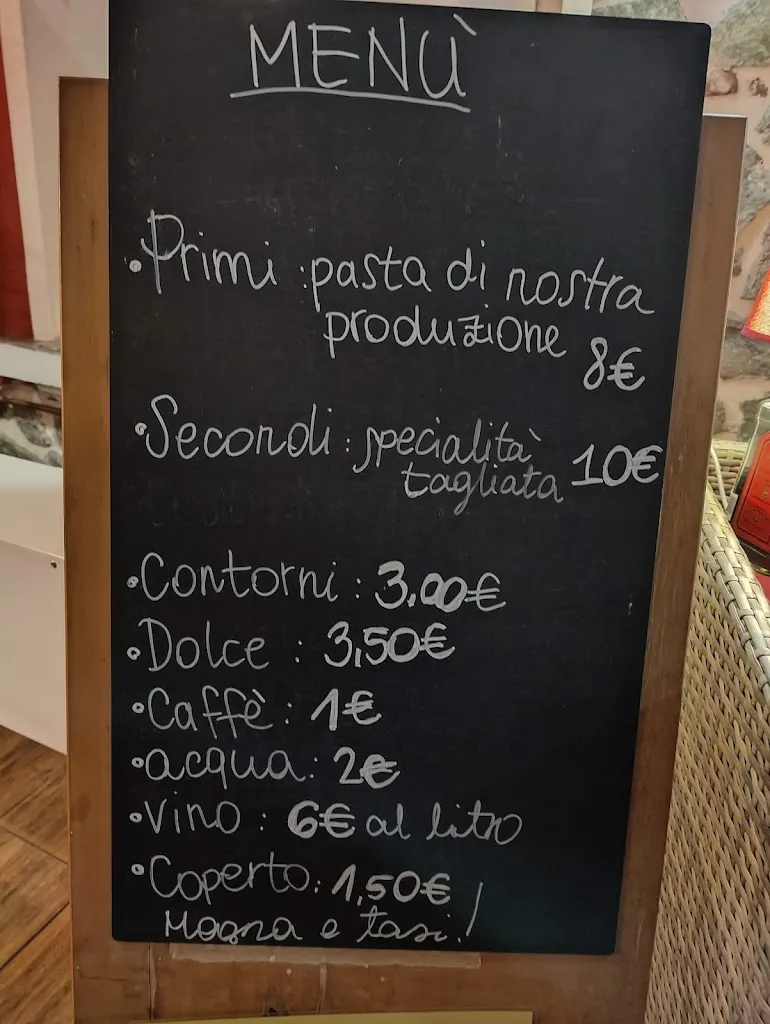 MENÙ
• Primi : pasta di nostra
produzione 8€
• Secondi : specialità
tagliata 10€
• Contorni : 3.00€
• Dolce : 3,50€
• Caffè : 1€
• acqua : 2€
• vino : 6€ al litro
• Coperto : 1,50€
Magna e tasi!